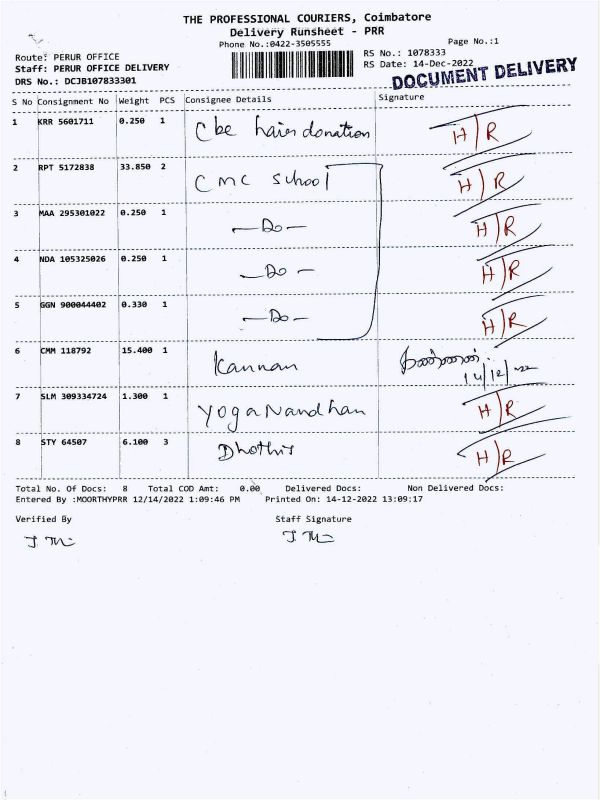 THE PROFESSIONAL COURIERS, Coimbatore
Delivery Runsheet - PRR
Phone No.:0422-3505555
Page No.:1
Route: PERUR OFFICE
RS No.: 1078333
Staff: PERUR OFFICE DELIVERY
RS Date: 14-Dec-2022
DRS No.: DCJB107833301
DOCUMENT DELIVERY
S No Consignment No Weight PCS Consignee Details Signature
1 KRR 5601711 0.250 1 Cbe hair donation H/R
2 RPT 5172838 33.850 2 CMC School H/R
3 MAA 295301022 0.250 1 —Do— H/R
4 NDA 105325026 0.250 1 —Do— H/R
5 GGN 900044402 0.330 1 —Do— H/R
6 CMM 118792 15.400 1 Kannan 14/12/22
7 SLM 309334724 1.300 1 YogaNandhan H/R
8 STY 64507 6.100 3 Dhothis H/R
Total No. Of Docs: 8 Total COD Amt: 0.00 Delivered Docs: Non Delivered Docs:
Entered By :MOORTHYPRR 12/14/2022 1:09:46 PM Printed On: 14-12-2022 13:09:17
Verified By Staff Signature